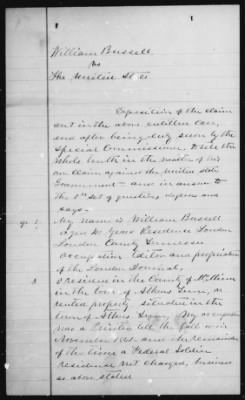 William Bussell
vs
The United States
Deposition of the claim
ant in the above entitled case,
and after being duly sworn by the
Special Commissioner, to tell the
whole truth in the matter of his
own claim against the United States
Government - and in answer to
the 1st set of questions deposes and
says -
My name is William Bussell
aged 40 years Residence Loudon
Loudon County Tennessee
occupation Editor and proprietor
of the Loudon Journal,
I resided in the County of McMinn
in the town of Athens Tenn, on
rented property situated in the
town of Athens Tenn, My occupation
was a Printer till the fall or in
November 1861 and the remainder
of the time a Federal Soldier
residence not changed,
as above stated